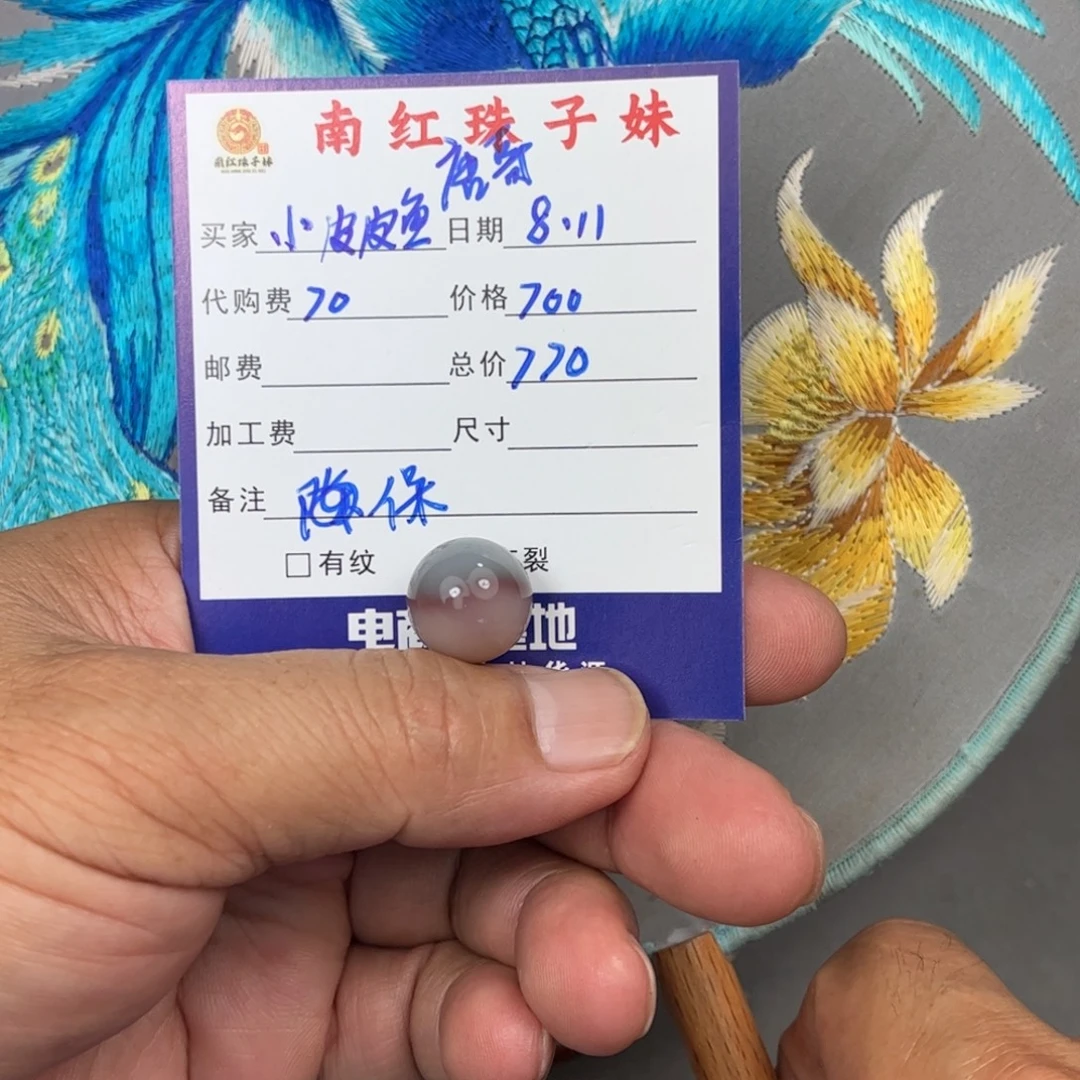 南红珠子妹
南红珠子妹
唐哥
买家 小皮皮鱼 日期 8.11
代购费 70 价格 700
邮费 总价 770
加工费 尺寸
备注 保
□有纹 裂
电商 基地